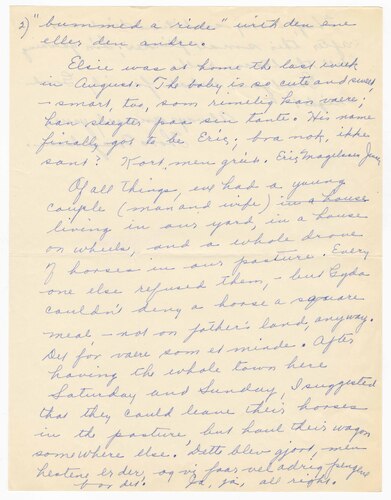 2) "bummed a ride" with den ene
eller den andre.
Elsie was at home the last week
in August. The baby is so cute and sweet,
- smart, too, som rimelig kan være;
han slegter paa sin tante. His name
finally got to be Eric; bra nok, ikke
sant? Kort, men greit. Eric Magelssen
Of all things, we had a young
couple (man and wife) in a house
living in our yard in a house
on wheels, and a whole drove
of horses in our pasture. Every
one else refused them, - but Gyda
couldn't deny a horse a square
meal - not on father's land, anyway.
Det faar være som et minde. After
having the whole town here
Saturday and Sunday, I suggested
that they could leave their horses
in the pasture, but haul their wagon
somewhere else. Dette blev gjort, men
hestene er der, og vi faar vel aldrig penger
for det. Ja, ja, all right.